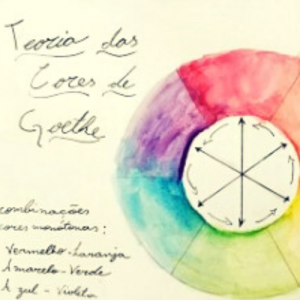 Teoria das
Cores de
Goethe
combinações
cores monótonas:
Vermelho-Laranja
Amarelo-Verde
Azul - Violeta